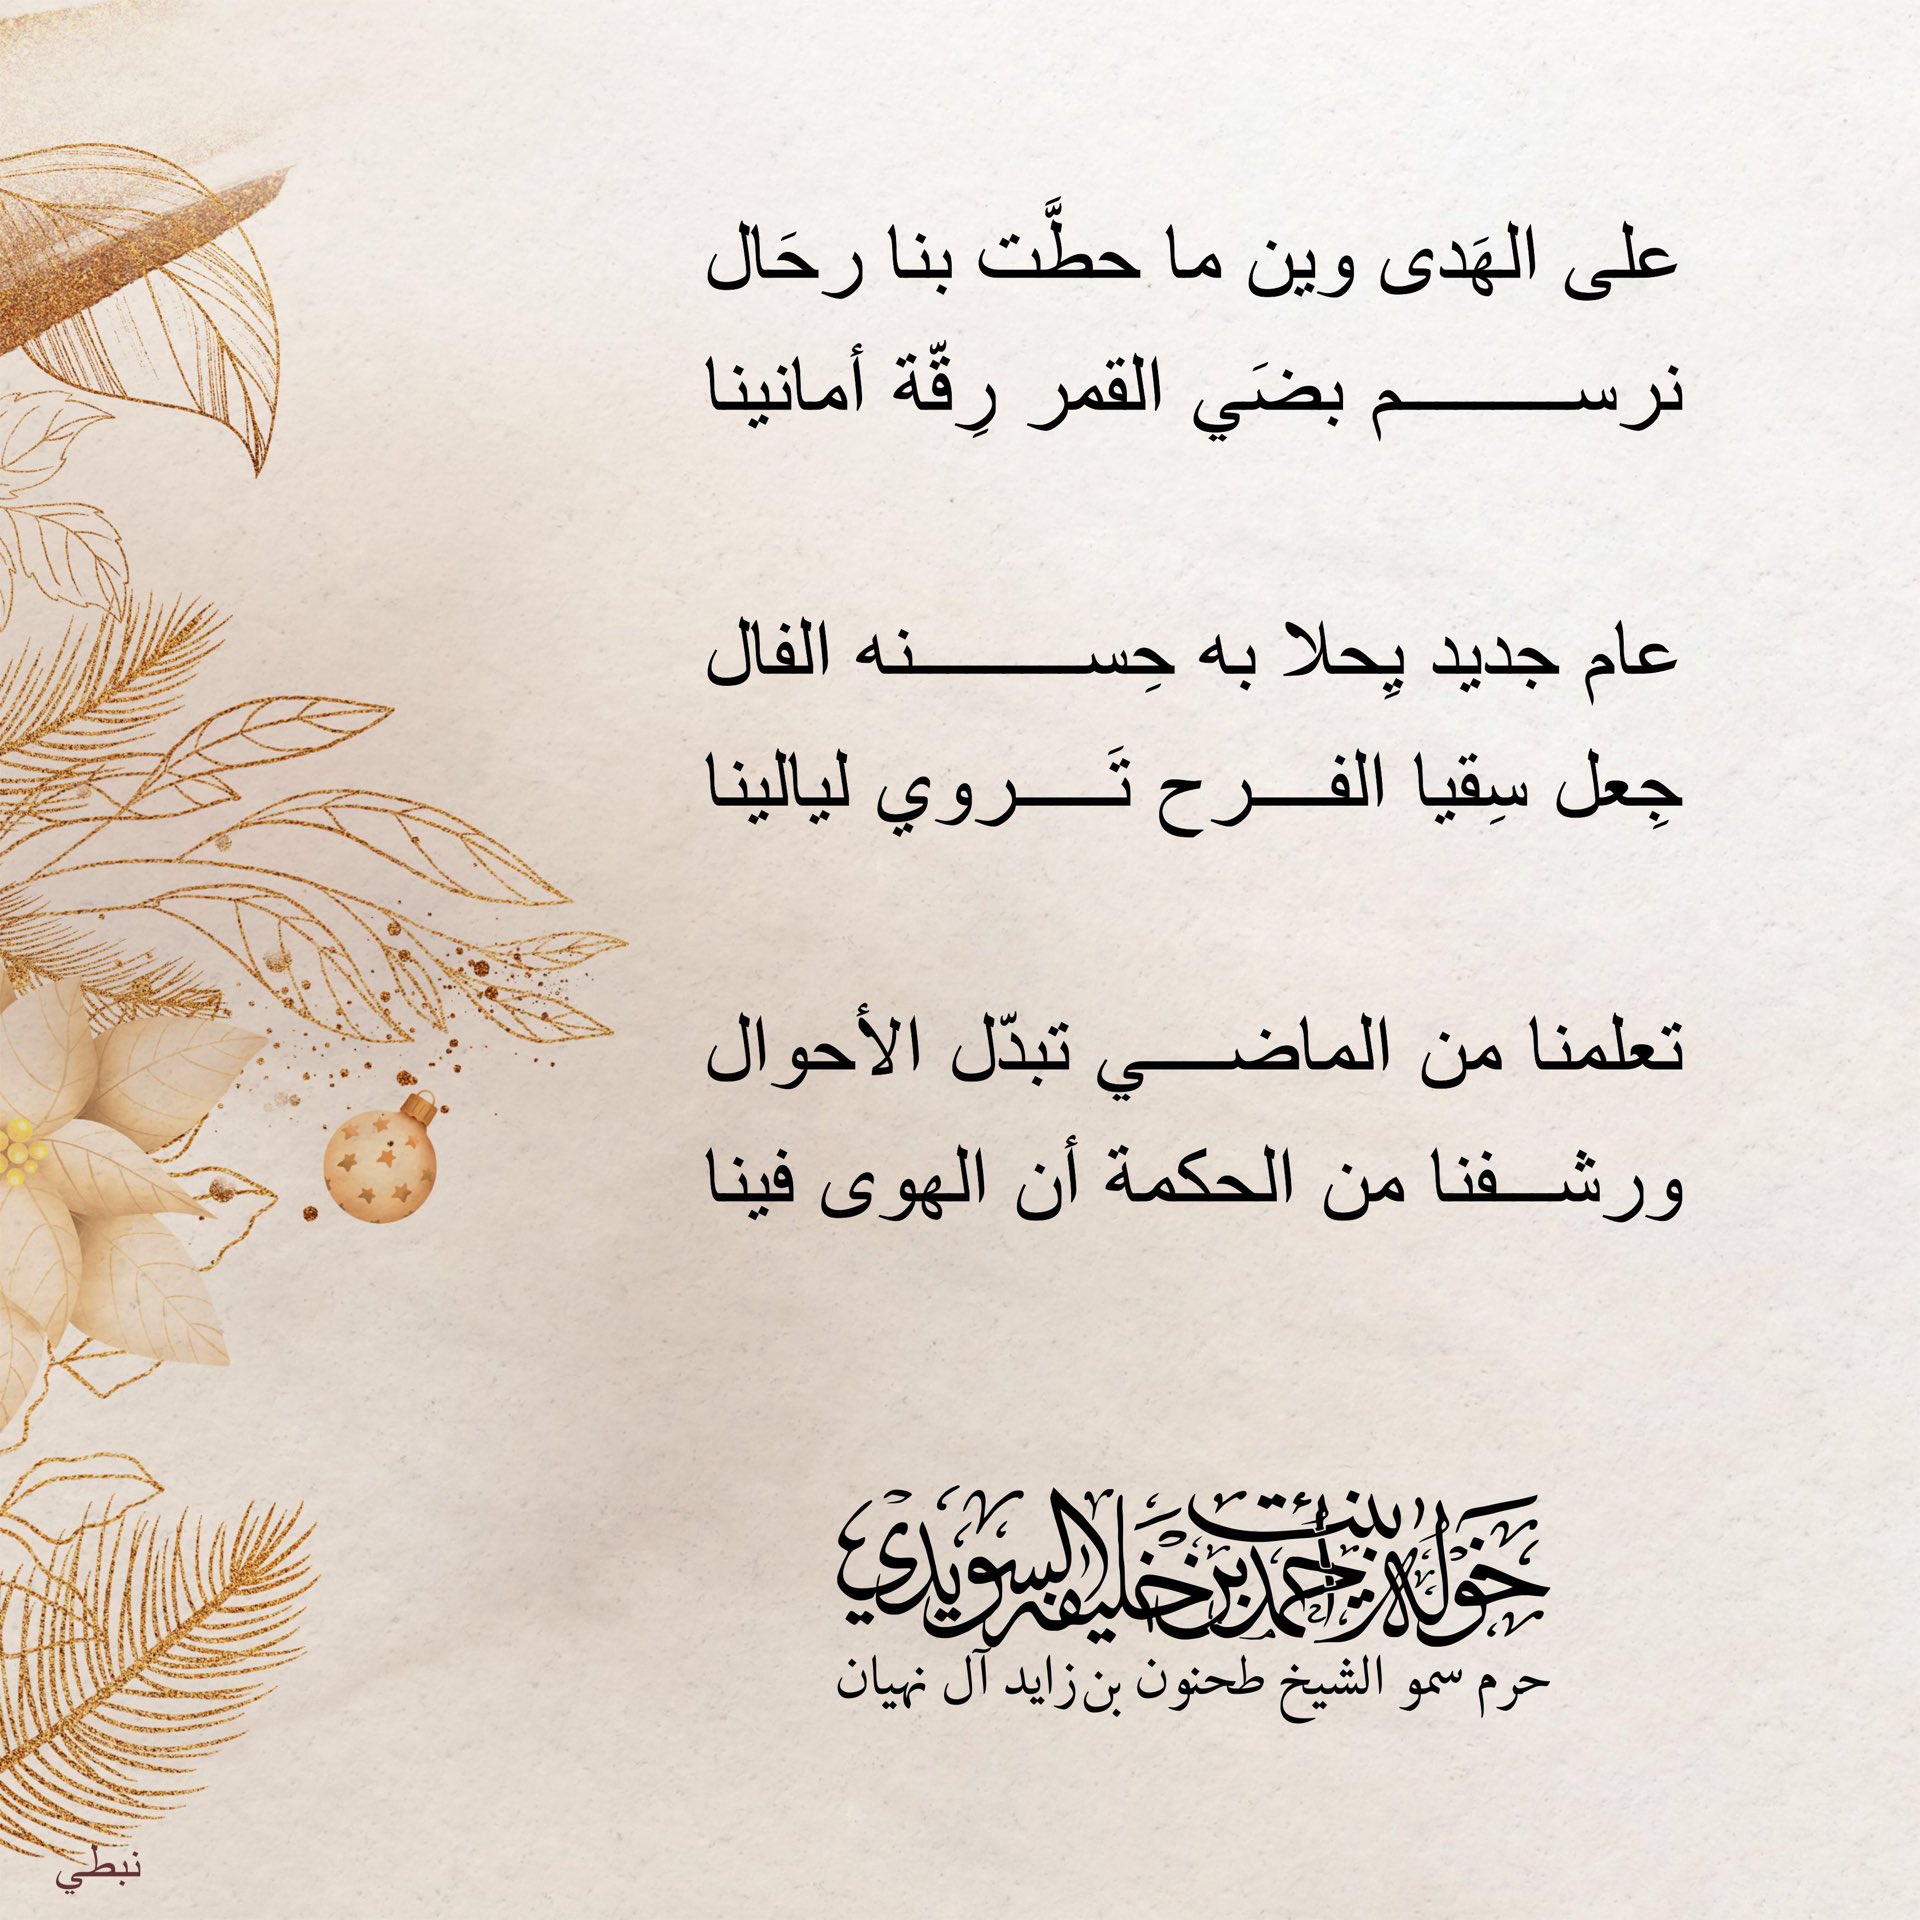 على الهَدى وين ما حطَّت بنا رحَال
نرسم بضَي القمر رِقّة أمانينا
عام جديد يِحلا به حِسنه الفال
جِعل سِقيا الفرح تَروي ليالينا
تعلمنا من الماضي تبدّل الأحوال
ورشفنا من الحكمة أن الهوى فينا
خولة بنت أحمد بن خليفة السويدي
حرم سمو الشيخ طحنون بن زايد آل نهيان
نبطي